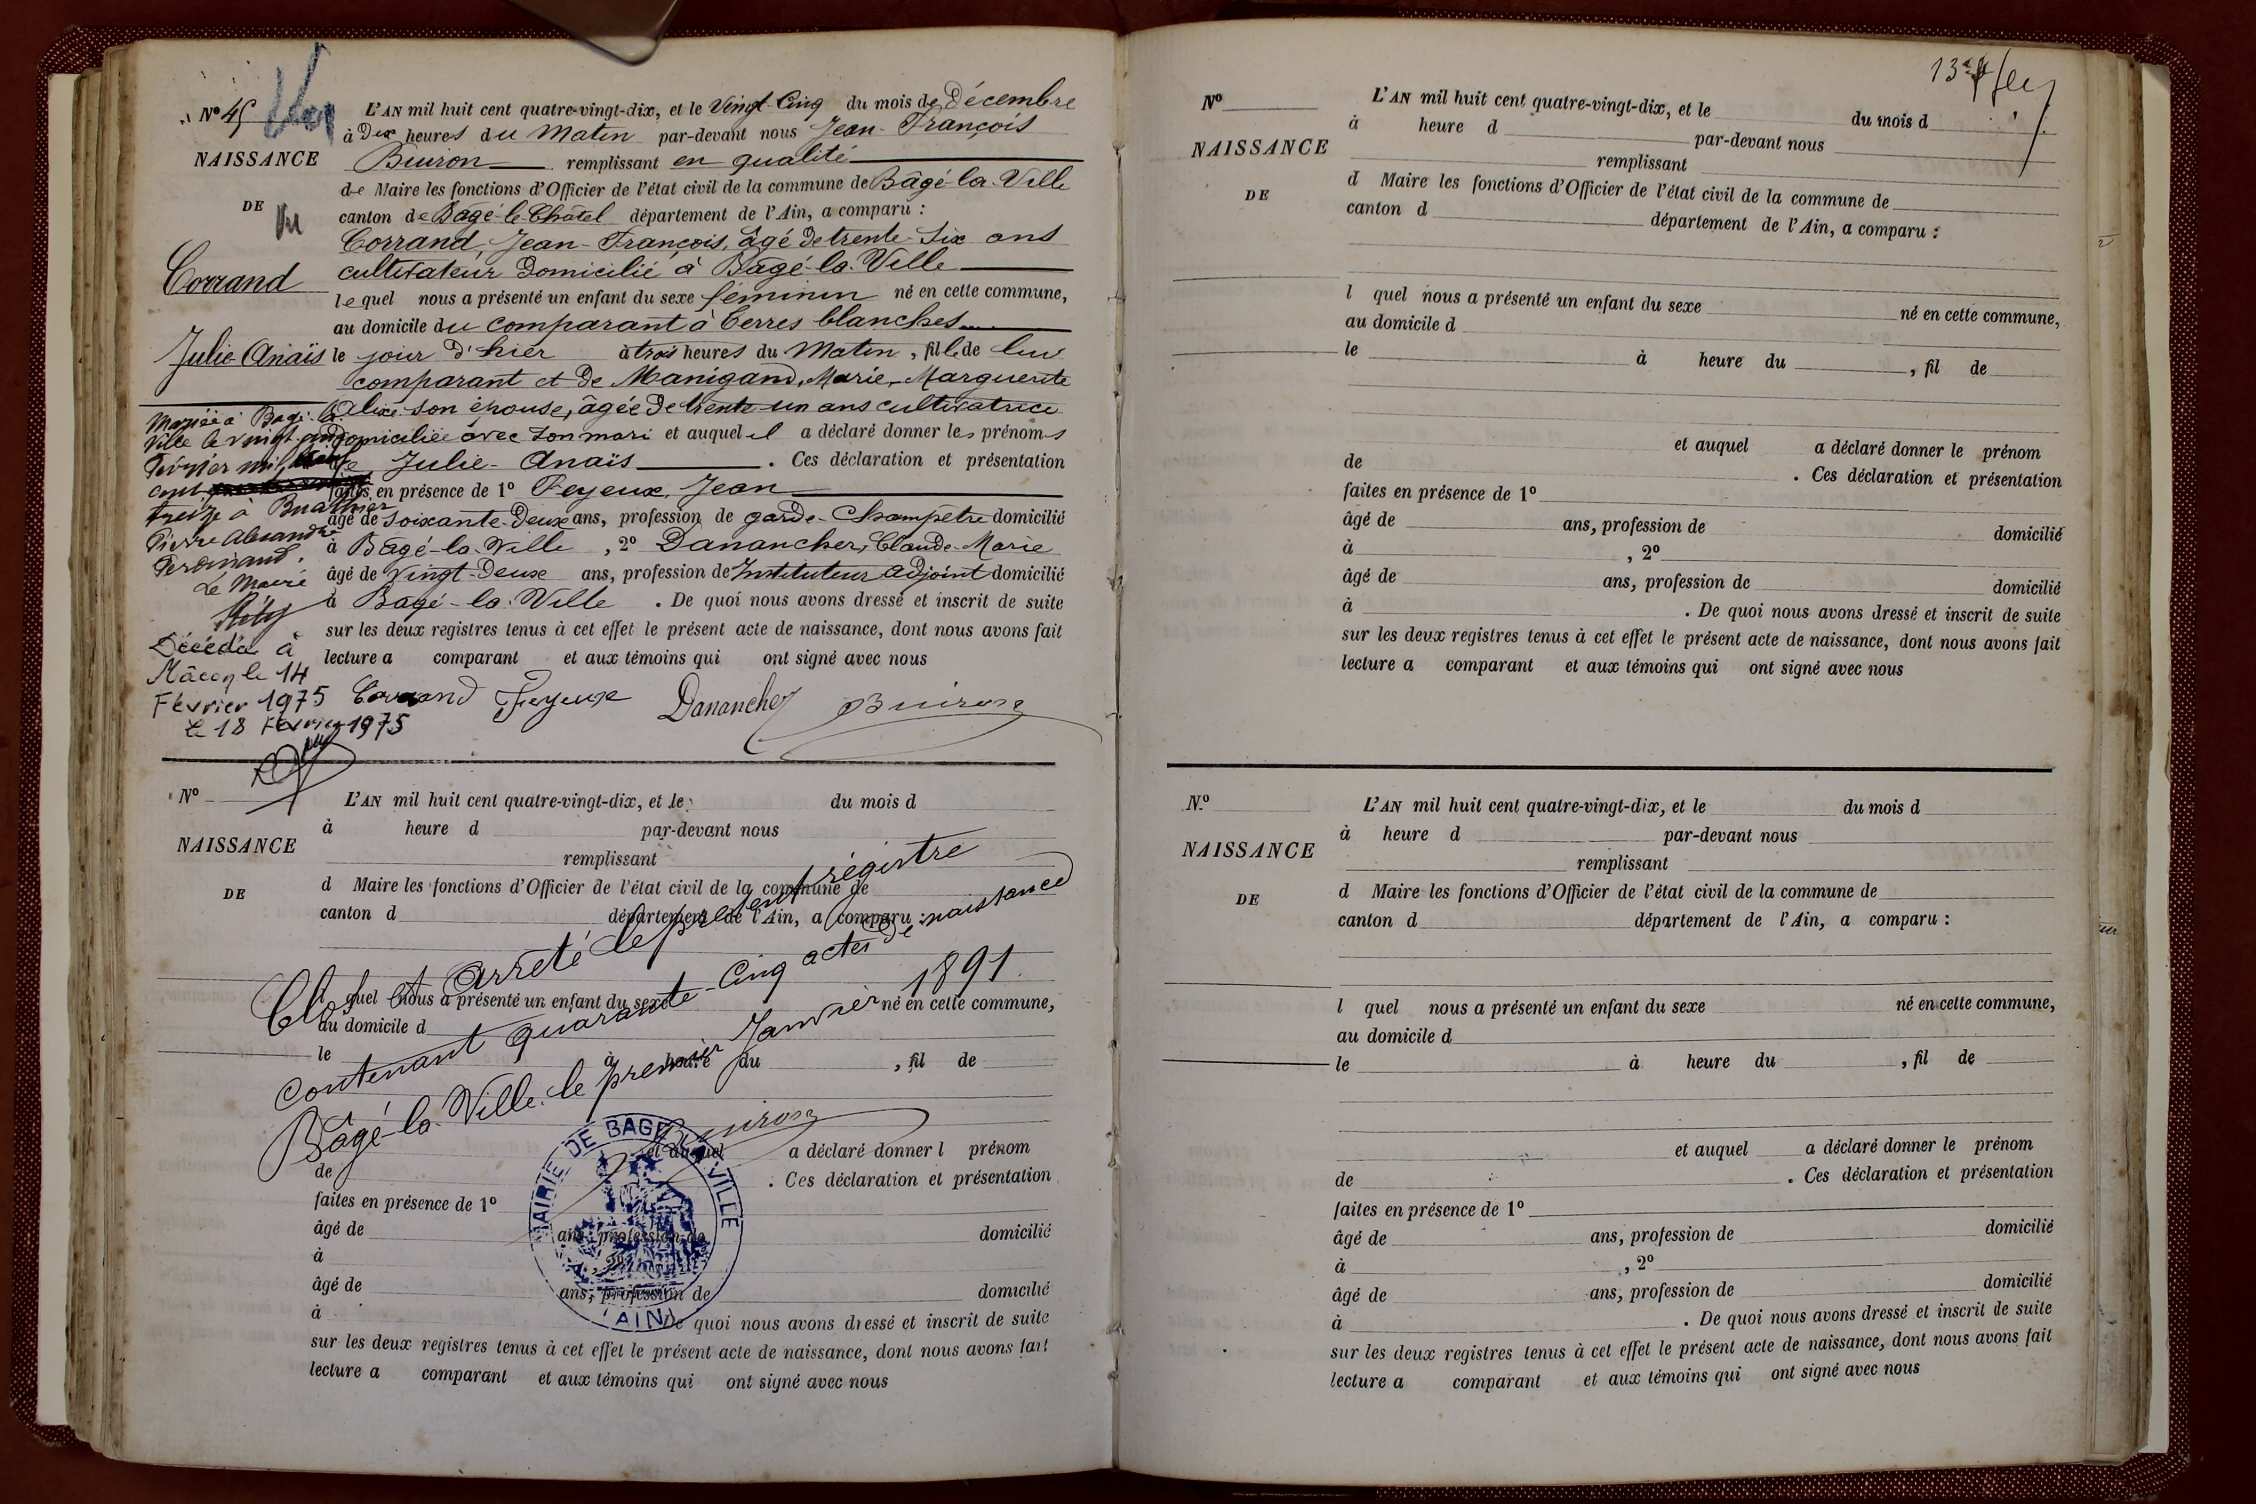 N° 45
NAISSANCE
DE
Vu
Corrand
Julie Anaïs
L'AN mil huit cent quatre-vingt-dix, et le Vingt-Cinq du mois de Décembre
à Dix heures du Matin par-devant nous Jean-François
Buiron remplissant en qualité
de Maire les fonctions d'Officier de l'état civil de la commune de Bâgé-la-Ville
canton de Bâgé-le-Châtel département de l'Ain, a comparu :
Corrand, Jean-François, âgé de trente-six ans
cultivateur domicilié à Bâgé-la-Ville
lequel nous a présenté un enfant du sexe féminin né en cette commune,
au domicile du comparant à Terres blanches
le jour d'hier à trois heures du Matin, fille de lui
comparant et de Manigand, Marie, Marguerite
Alix son épouse, âgée de trente-un ans cultivatrice
domiciliée avec son mari et auquel il a déclaré donner les prénoms
de Julie-Anaïs . Ces déclaration et présentation
faites en présence de 1° Feyeux, Jean
âgé de soixante-deux ans, profession de garde-Champêtre domicilié
à Bâgé-la-Ville , 2° Danancher, Claude-Marie
âgé de Vingt-Deux ans, profession de Instituteur adjoint domicilié
à Bâgé-la-Ville . De quoi nous avons dressé et inscrit de suite
sur les deux registres tenus à cet effet le présent acte de naissance, dont nous avons fait
lecture a comparant et aux témoins qui ont signé avec nous
Corrand Feyeux Danancher Buiron
Mariée à Bâgé-la
Ville le vingt-
Février mil neuf
cent
treize à Buathier
Pierre Alexandre
Ferdinand.
Le Maire
Décédée à
Mâcon le 14
Février 1975
le 18 Février 1975
N°
NAISSANCE
DE
L'AN mil huit cent quatre-vingt-dix, et le du mois d
à heure d par-devant nous
remplissant
d Maire les fonctions d'Officier de l'état civil de la commune de
canton d département de l'Ain, a comparu :
l quel nous a présenté un enfant du sexe né en cette commune,
au domicile d
le à heure du , fil de
et auquel a déclaré donner l prénom
de . Ces déclaration et présentation
faites en présence de 1°
âgé de ans, profession de domicilié
à , 2°
âgé de ans, profession de domicilié
à De quoi nous avons dressé et inscrit de suite
sur les deux registres tenus à cet effet le présent acte de naissance, dont nous avons fait
lecture a comparant et aux témoins qui ont signé avec nous
Clos et arrêté le présent régistre
contenant quarante-cinq actes de naissance
Bâgé-la-Ville le premier Janvier 1891.
Buiron
MAIRIE DE BAGÉ LA VILLE
(AIN)
N°
NAISSANCE
DE
L'AN mil huit cent quatre-vingt-dix, et le du mois d
à heure d par-devant nous
remplissant
d Maire les fonctions d'Officier de l'état civil de la commune de
canton d département de l'Ain, a comparu :
l quel nous a présenté un enfant du sexe né en cette commune,
au domicile d
le à heure du , fil de
et auquel a déclaré donner le prénom
de . Ces déclaration et présentation
faites en présence de 1°
âgé de ans, profession de domicilié
à , 2°
âgé de ans, profession de domicilié
à . De quoi nous avons dressé et inscrit de suite
sur les deux registres tenus à cet effet le présent acte de naissance, dont nous avons fait
lecture a comparant et aux témoins qui ont signé avec nous
N°
NAISSANCE
DE
L'AN mil huit cent quatre-vingt-dix, et le du mois d
à heure d par-devant nous
remplissant
d Maire les fonctions d'Officier de l'état civil de la commune de
canton d département de l'Ain, a comparu :
l quel nous a présenté un enfant du sexe né en cette commune,
au domicile d
le à heure du , fil de
et auquel a déclaré donner le prénom
de . Ces déclaration et présentation
faites en présence de 1°
âgé de ans, profession de domicilié
à , 2°
âgé de ans, profession de domicilié
à . De quoi nous avons dressé et inscrit de suite
sur les deux registres tenus à cet effet le présent acte de naissance, dont nous avons fait
lecture a comparant et aux témoins qui ont signé avec nous